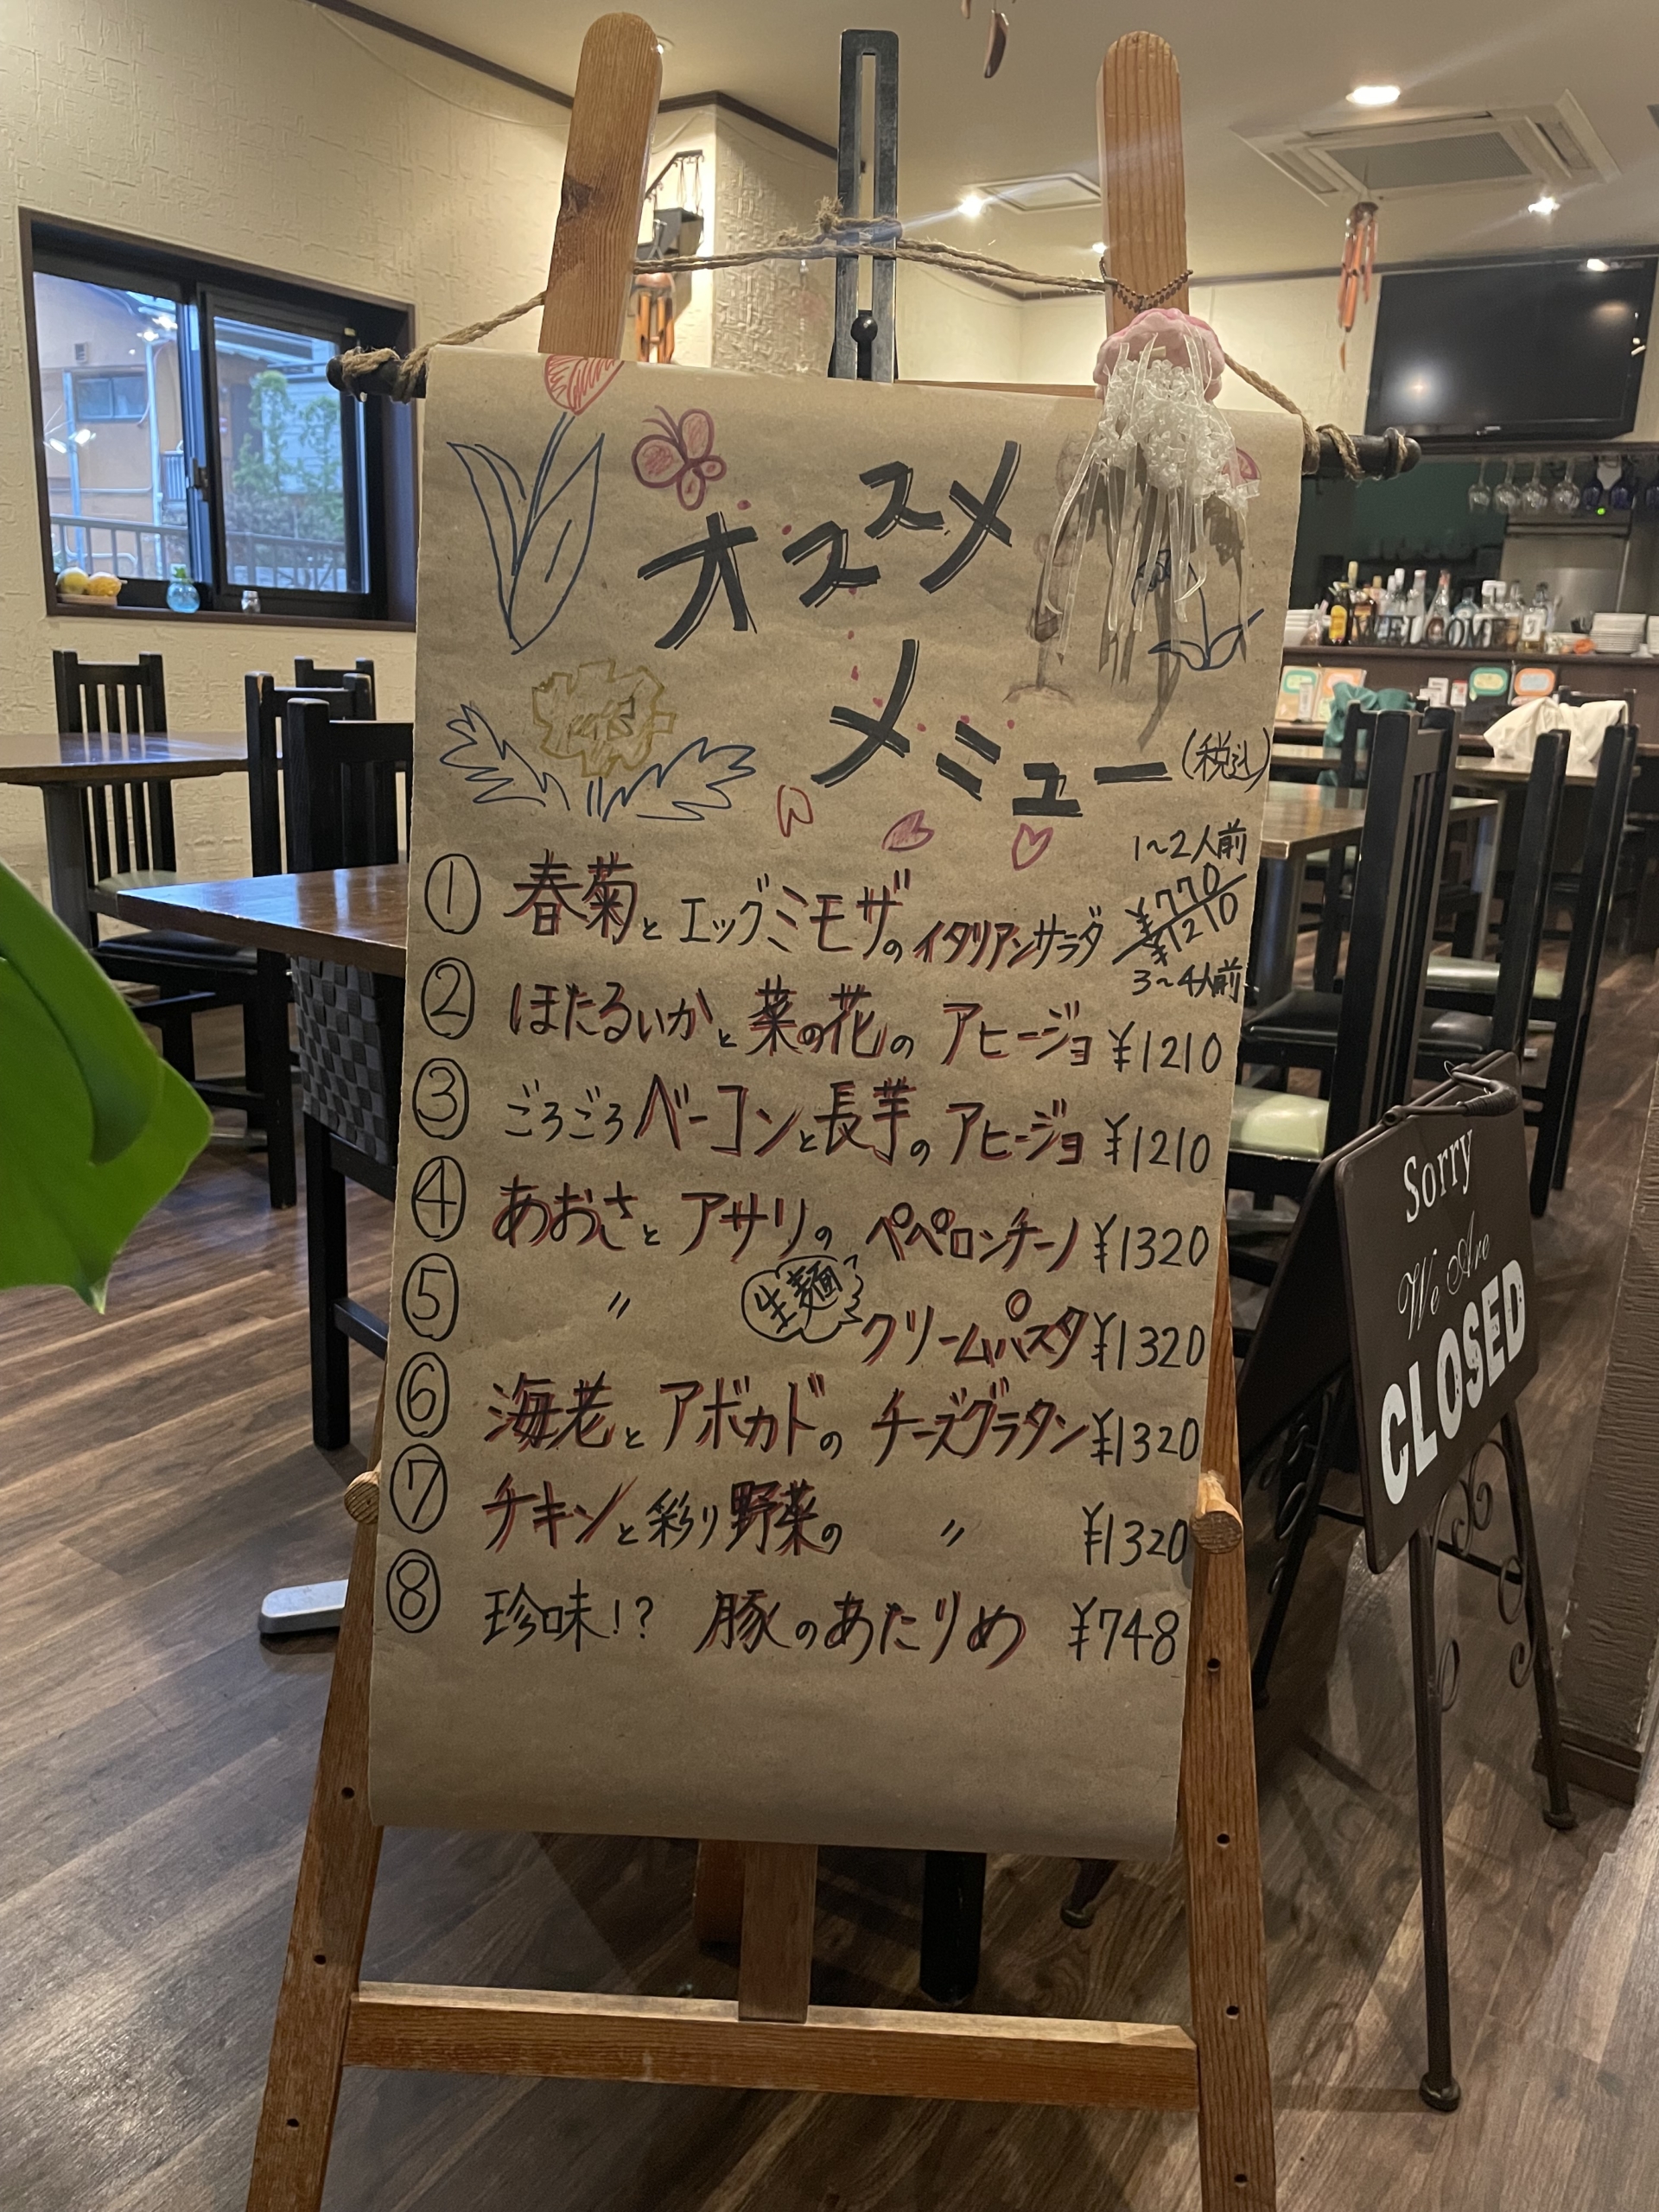 オススメ
メニュー(税込)
1~2人前
① 春菊とエッグミモザのイタリアンサラダ ¥770
¥1210
3~4人前
② ほたるいかと菜の花のアヒージョ ¥1210
③ ごろごろベーコンと長芋のアヒージョ ¥1210
④ あおさとアサリのペペロンチーノ ¥1320
⑤ 〃 生麺 クリームパスタ ¥1320
⑥ 海老とアボカドのチーズグラタン ¥1320
⑦ チキンと彩り野菜の 〃 ¥1320
⑧ 珍味!? 豚のあたりめ ¥748
Sorry
We Are
CLOSED